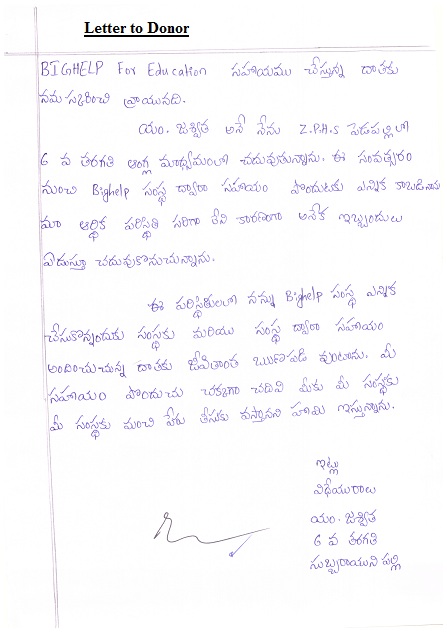 Letter to Donor
BIGHELP For Education సహాయము చేస్తున్న దాతకు
నమస్కరించి వ్రాయునది.
యం. జశ్విత అనే నేను Z.P.H.S పెడపల్లిలో
6 వ తరగతి ఆంగ్ల మాధ్యమంలో చదువుతున్నాను. ఈ సంవత్సరం
నుంచి Bighelp సంస్థ ద్వారా సహాయం పొందుటకు ఎన్నిక కాబడినాను
మా ఆర్థిక పరిస్థితి సరిగా లేని కారణంగా అనేక ఇబ్బందులు
ఏదుర్కొ చదువుకొనుచున్నాను.
ఈ పరిస్థితులలో నన్ను Bighelp సంస్థ ఎన్నిక
చేసుకొన్నందుకు సంస్థకు మరియు సంస్థ ద్వారా సహాయం
అందించుచున్న దాతకు జీవితాంత ఋణపడి వుంటాను. మీ
సహాయం పొందుచు చక్కగా చదివి మీకు మీ సంస్థకు
మీ సంస్థకు మంచి పేరు తీసుకు వస్తానని హామి ఇస్తున్నాను.
ఇట్లు
విధేయురాలు
యం. జశ్విత
6 వ తరగతి
సుబ్బరాయుని పల్లి